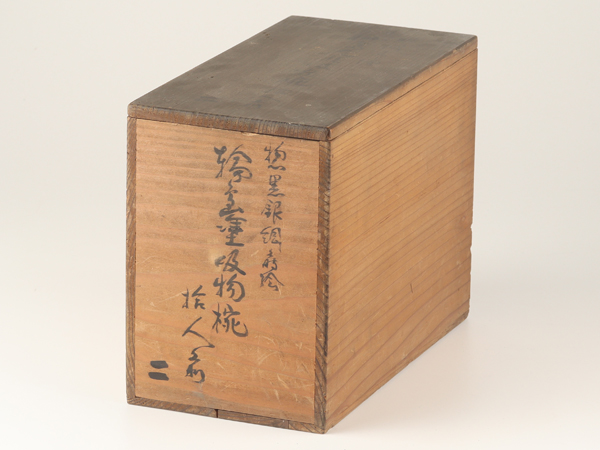 惣黒銀絵蒔絵
輪島塗吸物椀
拾人前
二